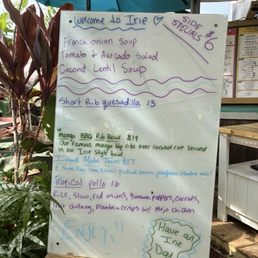 Welcome to Irie
SIDE
SPECIALS
$6
French onion Soup
Tomato & Avocado Salad
Coconut Lentil Soup
Short Rib quesadilla 13
Mango BBQ Rib Bowl $19
Our Famous mango bbq ribs over coconut rice Served
in our Irie Style bowl
Island
Tropical pollo 16
Rice, Slaw, red onions, Banana peppers, carrots,
chutney, Plantain crisps w/ Mojo chicken
ENJOY!!
Have an
Irie
Day